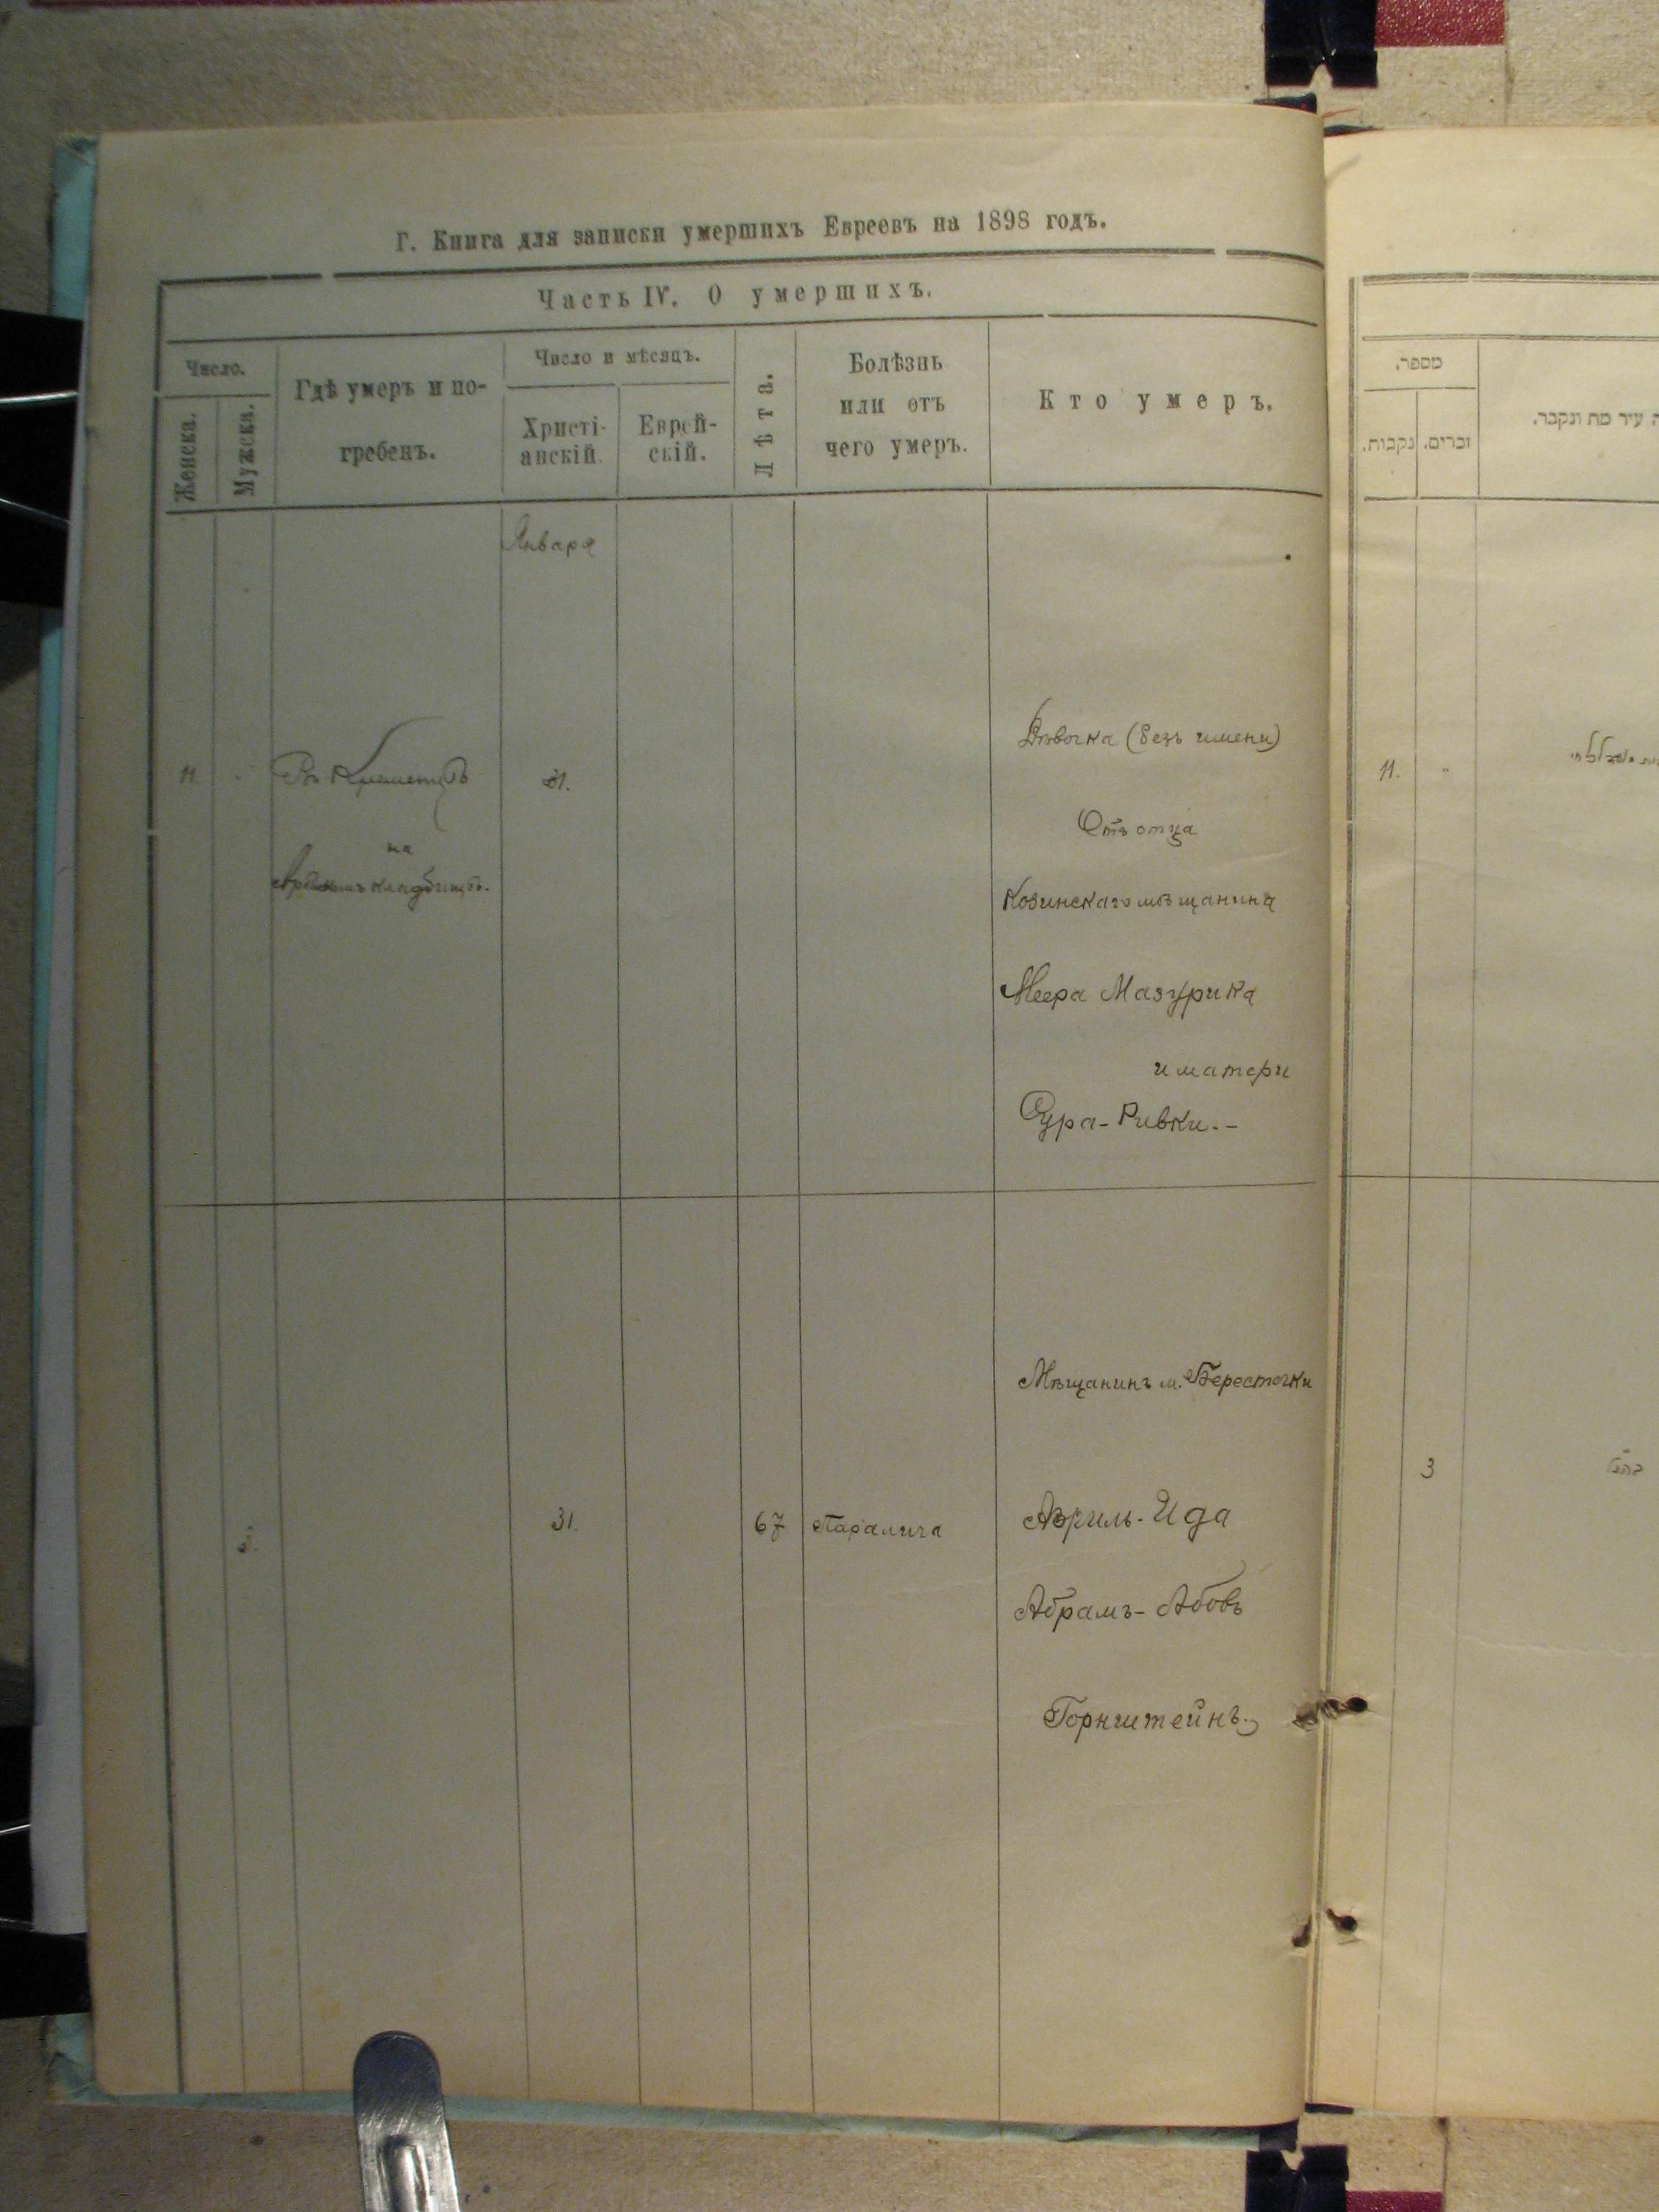 Г. Книга для записки умершихъ Евреевъ на 1898 годъ.
Часть IV. О умершихъ.
Число.
Женска.
Мужска.
Гдѣ умеръ и по-
гребенъ.
Число и мѣсяцъ.
Христі-
анскій.
Еврей-
скій.
Лѣта.
Болѣзнь
или отъ
чего умеръ.
Кто умеръ.
Января
11.
Въ Кременцѣ
на
кладбищѣ.
31.
Дѣвочка (безъ имени)
Отъ отца
Козинскаго мѣщанина
Меера Мазурика
и матери
Сура-Ривки.-
3.
31.
67
Паралича
Мѣщанинъ м. Берестечки
Азриль-Ида
Абрамъ-Абовъ
Горнштейнъ.
מספר.
זכרים.
נקבות.
עיר מת ונקבר.
11.
"
3